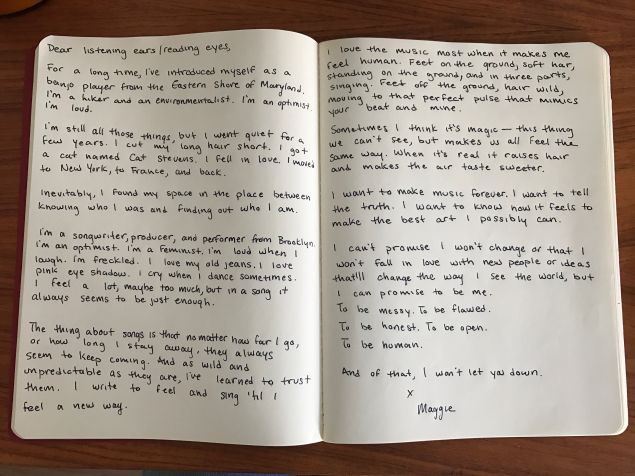 Dear listening ears/reading eyes,
For a long time, I've introduced myself as a
banjo player from the Eastern Shore of Maryland.
I'm a hiker and an environmentalist. I'm an optimist.
I'm loud.
I'm still all those things, but I went quiet for a
few years. I cut my long hair short. I got
a cat named Cat Stevens. I fell in love. I moved
to New York, to France, and back.
Inevitably, I found my space in the place between
knowing who I was and finding out who I am.
I'm a songwriter, producer, and performer from Brooklyn.
I'm an optimist. I'm a feminist. I'm loud when I
laugh. I'm freckled. I love my old jeans. I love
pink eye shadow. I cry when I dance sometimes.
I feel a lot, maybe too much, but in a song it
always seems to be just enough.
The thing about songs is that no matter how far I go,
or how long I stay away, they always
seem to keep coming. And as wild and
unpredictable as they are, I've learned to trust
them. I write to feel and sing 'til I
feel a new way.
I love the music most when it makes me
feel human. Feet on the ground, soft hair,
standing on the ground, and in three parts,
singing. Feet off the ground, hair wild,
moving to that perfect pulse that mimics
your beat and mine.
Sometimes I think it's magic — this thing
we can't see, but makes us all feel the
same way. When it's real it raises hair
and makes the air taste sweeter.
I want to make music forever. I want to tell
the truth. I want to know how it feels to
make the best art I possibly can.
I can't promise I won't change or that I
won't fall in love with new people or ideas
that'll change the way I see the world, but
I can promise to be me.
To be messy. To be flawed.
To be honest. To be open.
To be human.
And of that, I won't let you down.
x
Maggie